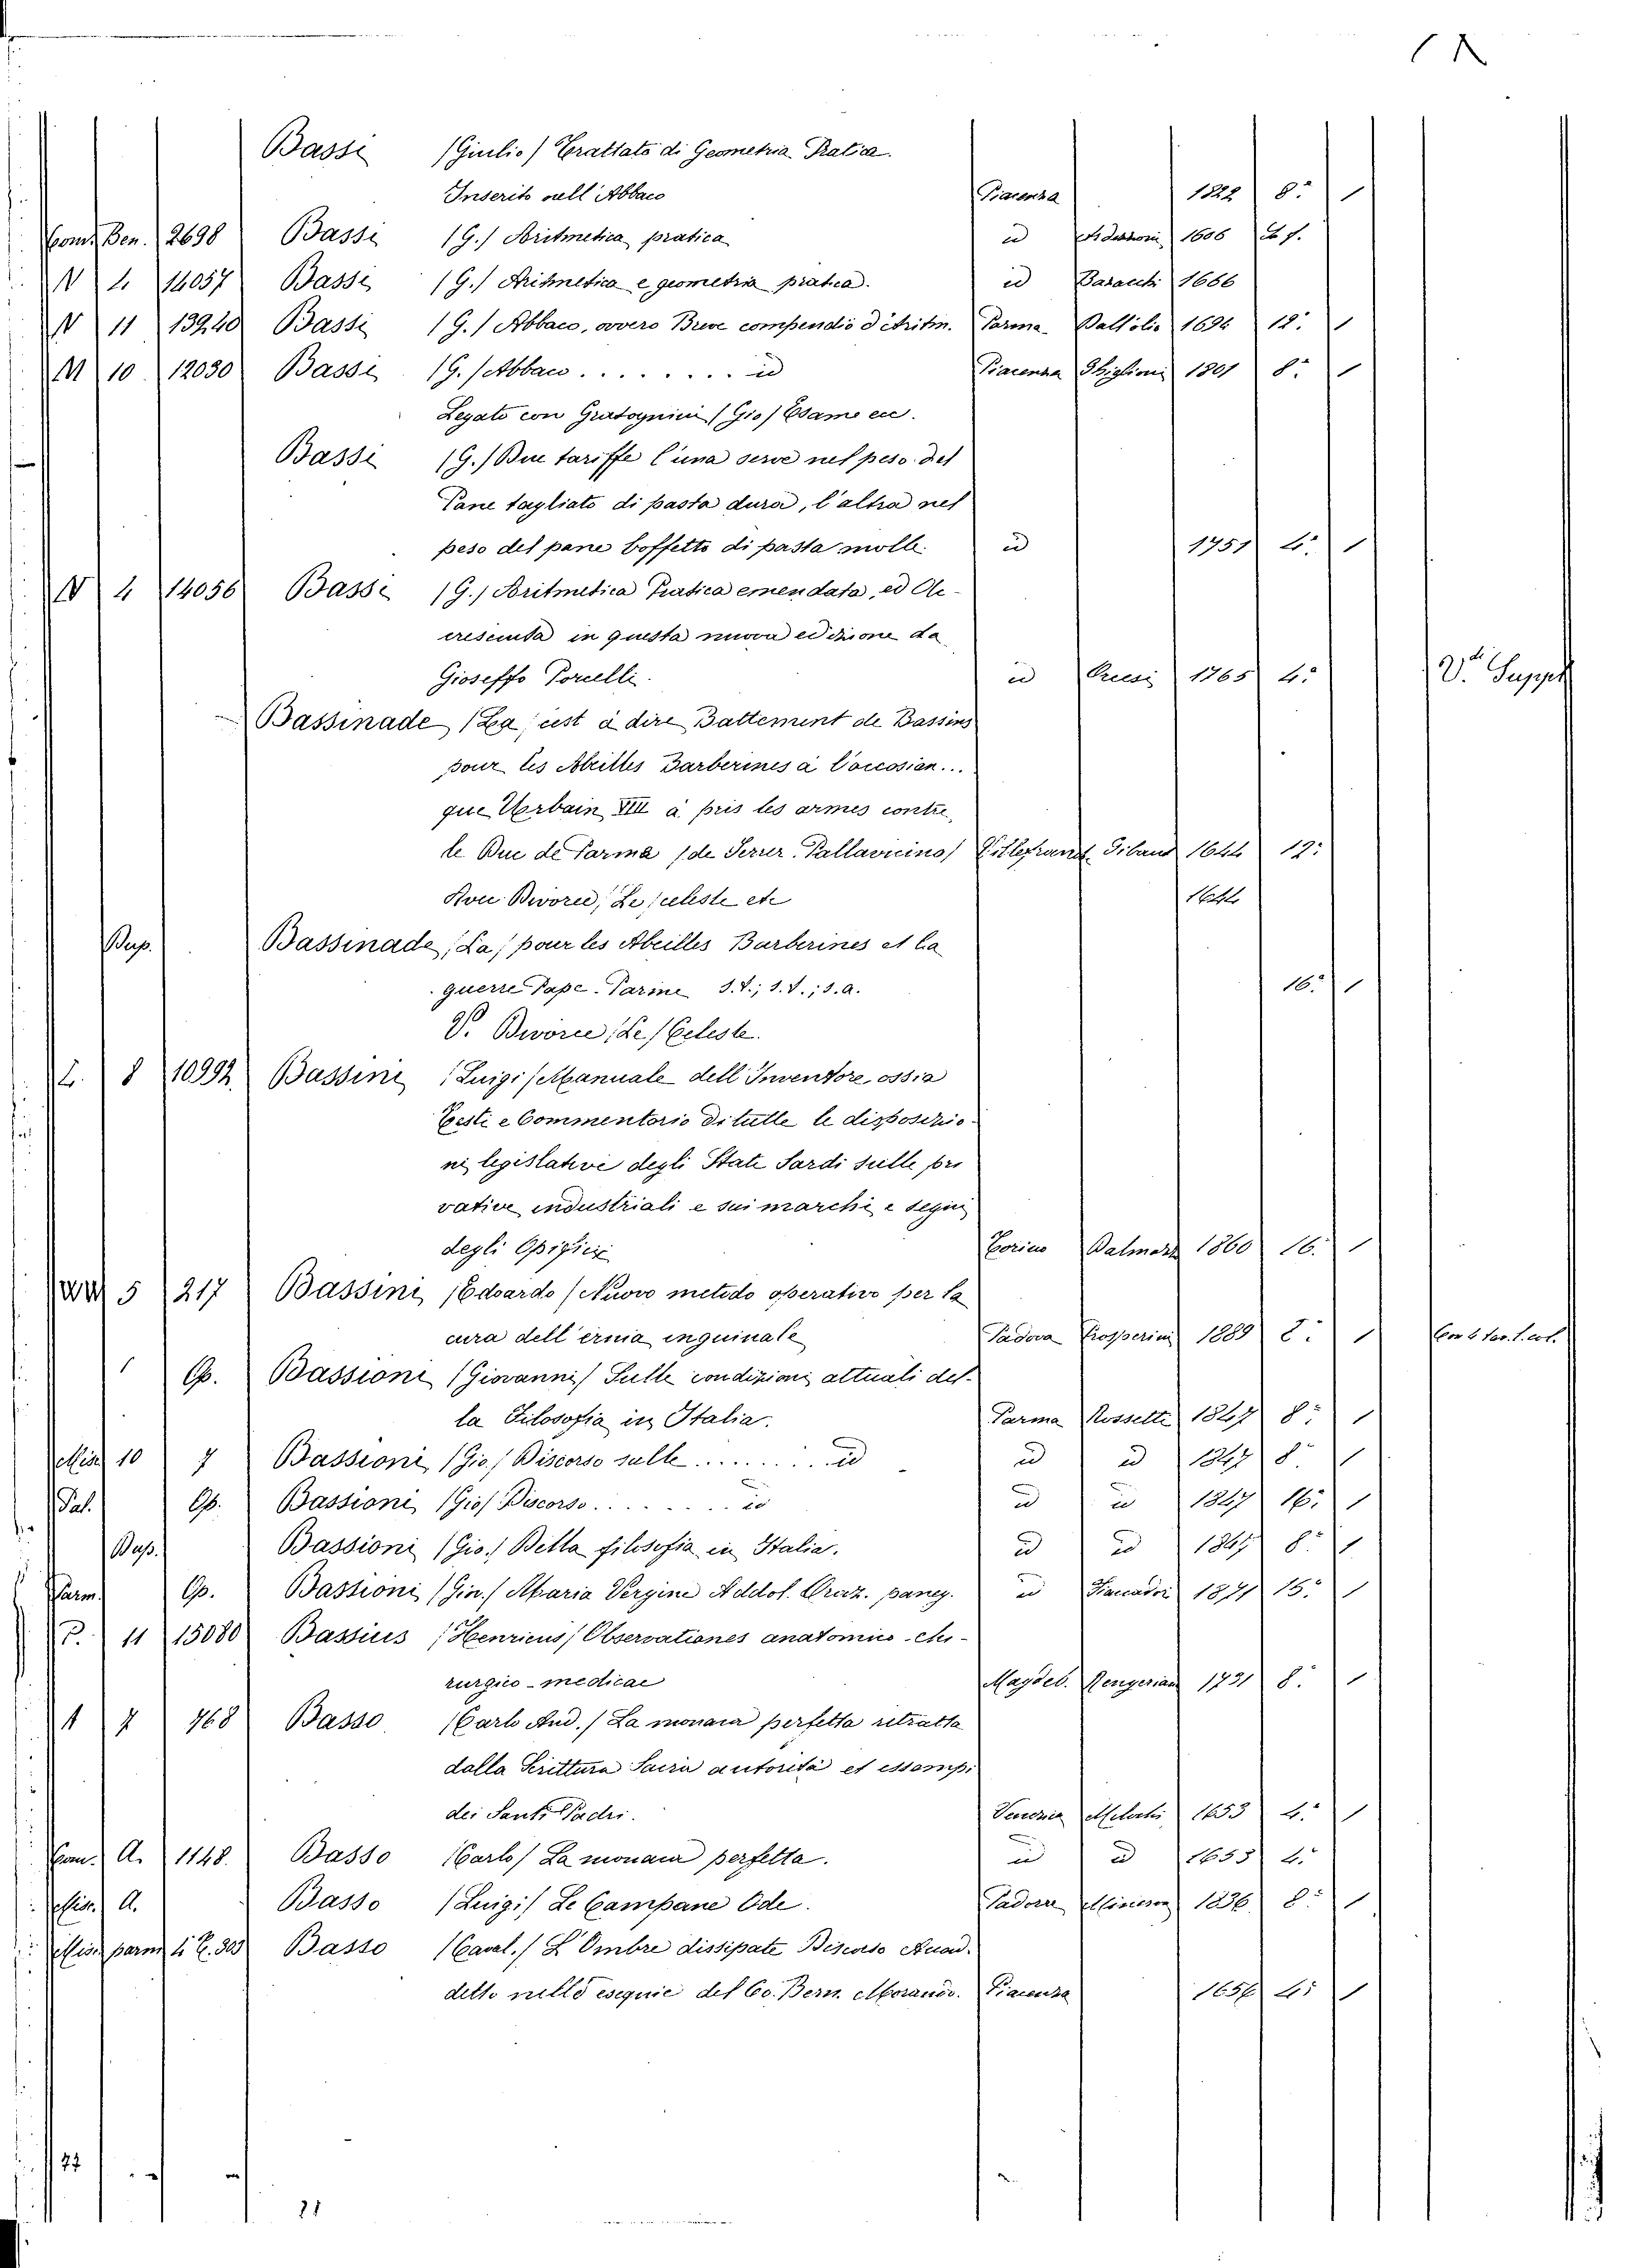 Bassi (Giulio) Trattato di Geometria Pratica.
Inserito nell'Abbaco Piacenza 1822 8.° 1
Com. Ben. 2698 Bassi (G.) Aritmetica pratica id 1606
N 4 14057 Bassi (G.) Aritmetica e geometria pratica. id Bazacchi 1666
N 11 13940 Bassi (G.) Abbaco, ovvero Breve compendio d'Aritm. Parma 1694 12.° 1
M 10 12030 Bassi (G.) Abbaco ........ id Piacenza Ghiglioni 1801 8.° 1
Legato con Gratognini (Gio) Esame ec.
Bassi (G.) Due tariffe l'una serve nel peso del
Pane tagliato di pasta dura, l'altra nel
peso del pane boffetto di pasta molle. id 1751 4.° 1
N 4 14056 Bassi (G.) Aritmetica Pratica emendata, ed Ac-
cresciuta in questa nuova edizione da
Gioseffo Porcelli. id 1765 4.° V. Suppl
Bassinade (La) c'est à dire Battement de Bassins
pour les Abeilles Barberines à l'occosien...
que Urbain VIII a pris les armes contre
le Duc de Parme (de Ferrer. Pallavicino) Villefranch. Gibaud 1644 12.°
Avec Divorce, Le céleste etc 1644
Dup. Bassinade (La) pour les Abeilles Barberines et la
guerre Pape-Parme S.T.; S.T.; S.A. 16.° 1
V. Divorce (Le) Celeste.
L. 8 10992 Bassini (Luigi) Manuale dell'Inventore, ossia
Testi e Commentorio di tutte le disposizio-
ni legislative degli Stati Sardi sulle pri
vative industriali e sui marchi e segni
degli Opifici Torino Dalmazz 1860 16.° 1
5 217 Bassini (Edoardo) Nuovo metodo operativo per la
cura dell'ernia inguinale Padova Prosperini 1889 8.° 1
Op. Bassioni (Giovanni) Sulle condizioni attuali del-
la Filosofia in Italia. Parma Rossetti 1847 8.° 1
Misc. 10 7 Bassioni (Gio.) Discorso sulle ........ id id id 1847 8.° 1
Pal. Op. Bassioni (Gio) Discorso ........ id id id 1847 16.° 1
Dup. Bassioni (Gio.) Della filosofia in Italia. id id 1847 8.° 1
Parm. Op. Bassioni (Gio.) Maria Vergine Addol. Oraz. paneg. id Fiaccadori 1871 15.° 1
P. 11 15080 Bassius (Henricus) Observationes anatomico-chi-
rurgico-medicae Magdeb. Rengerian 1731 8.° 1
1 7 768 Basso (Carlo And.) La monaca perfetta ritratta
dalla Scrittura Sacra autorità et essempi
dei Santi Padri. Venezia Milochi 1653 4.° 1
Com. A. 1148. Basso (Carlo) La monaca perfetta. id id 1653 4.°
Misc. A. Basso (Luigi) Le Campane Ode. Padova Minerva 1836 8.° 1
Misc. parm. Basso (Caval.) L'Ombre dissipate Discorso Accad.
detto nelle esequie del Co. Bern. Morando. Piacenza 1656 4.° 1